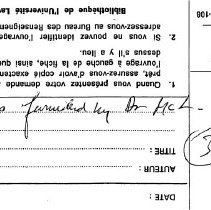 DATE :
AUTEUR :
TITRE :
furnished by Dr McL.
1. Quand vous présentez votre demande
prêt, assurez-vous d'avoir copié exactem
l'ouvrage à gauche de la fiche, ainsi que
dessus s'il y a lieu.
2. Si vous ne pouvez identifier l'ouvrage
adressez-vous au Bureau des Renseignem
Bibliothèque de l'Université Lav
-106